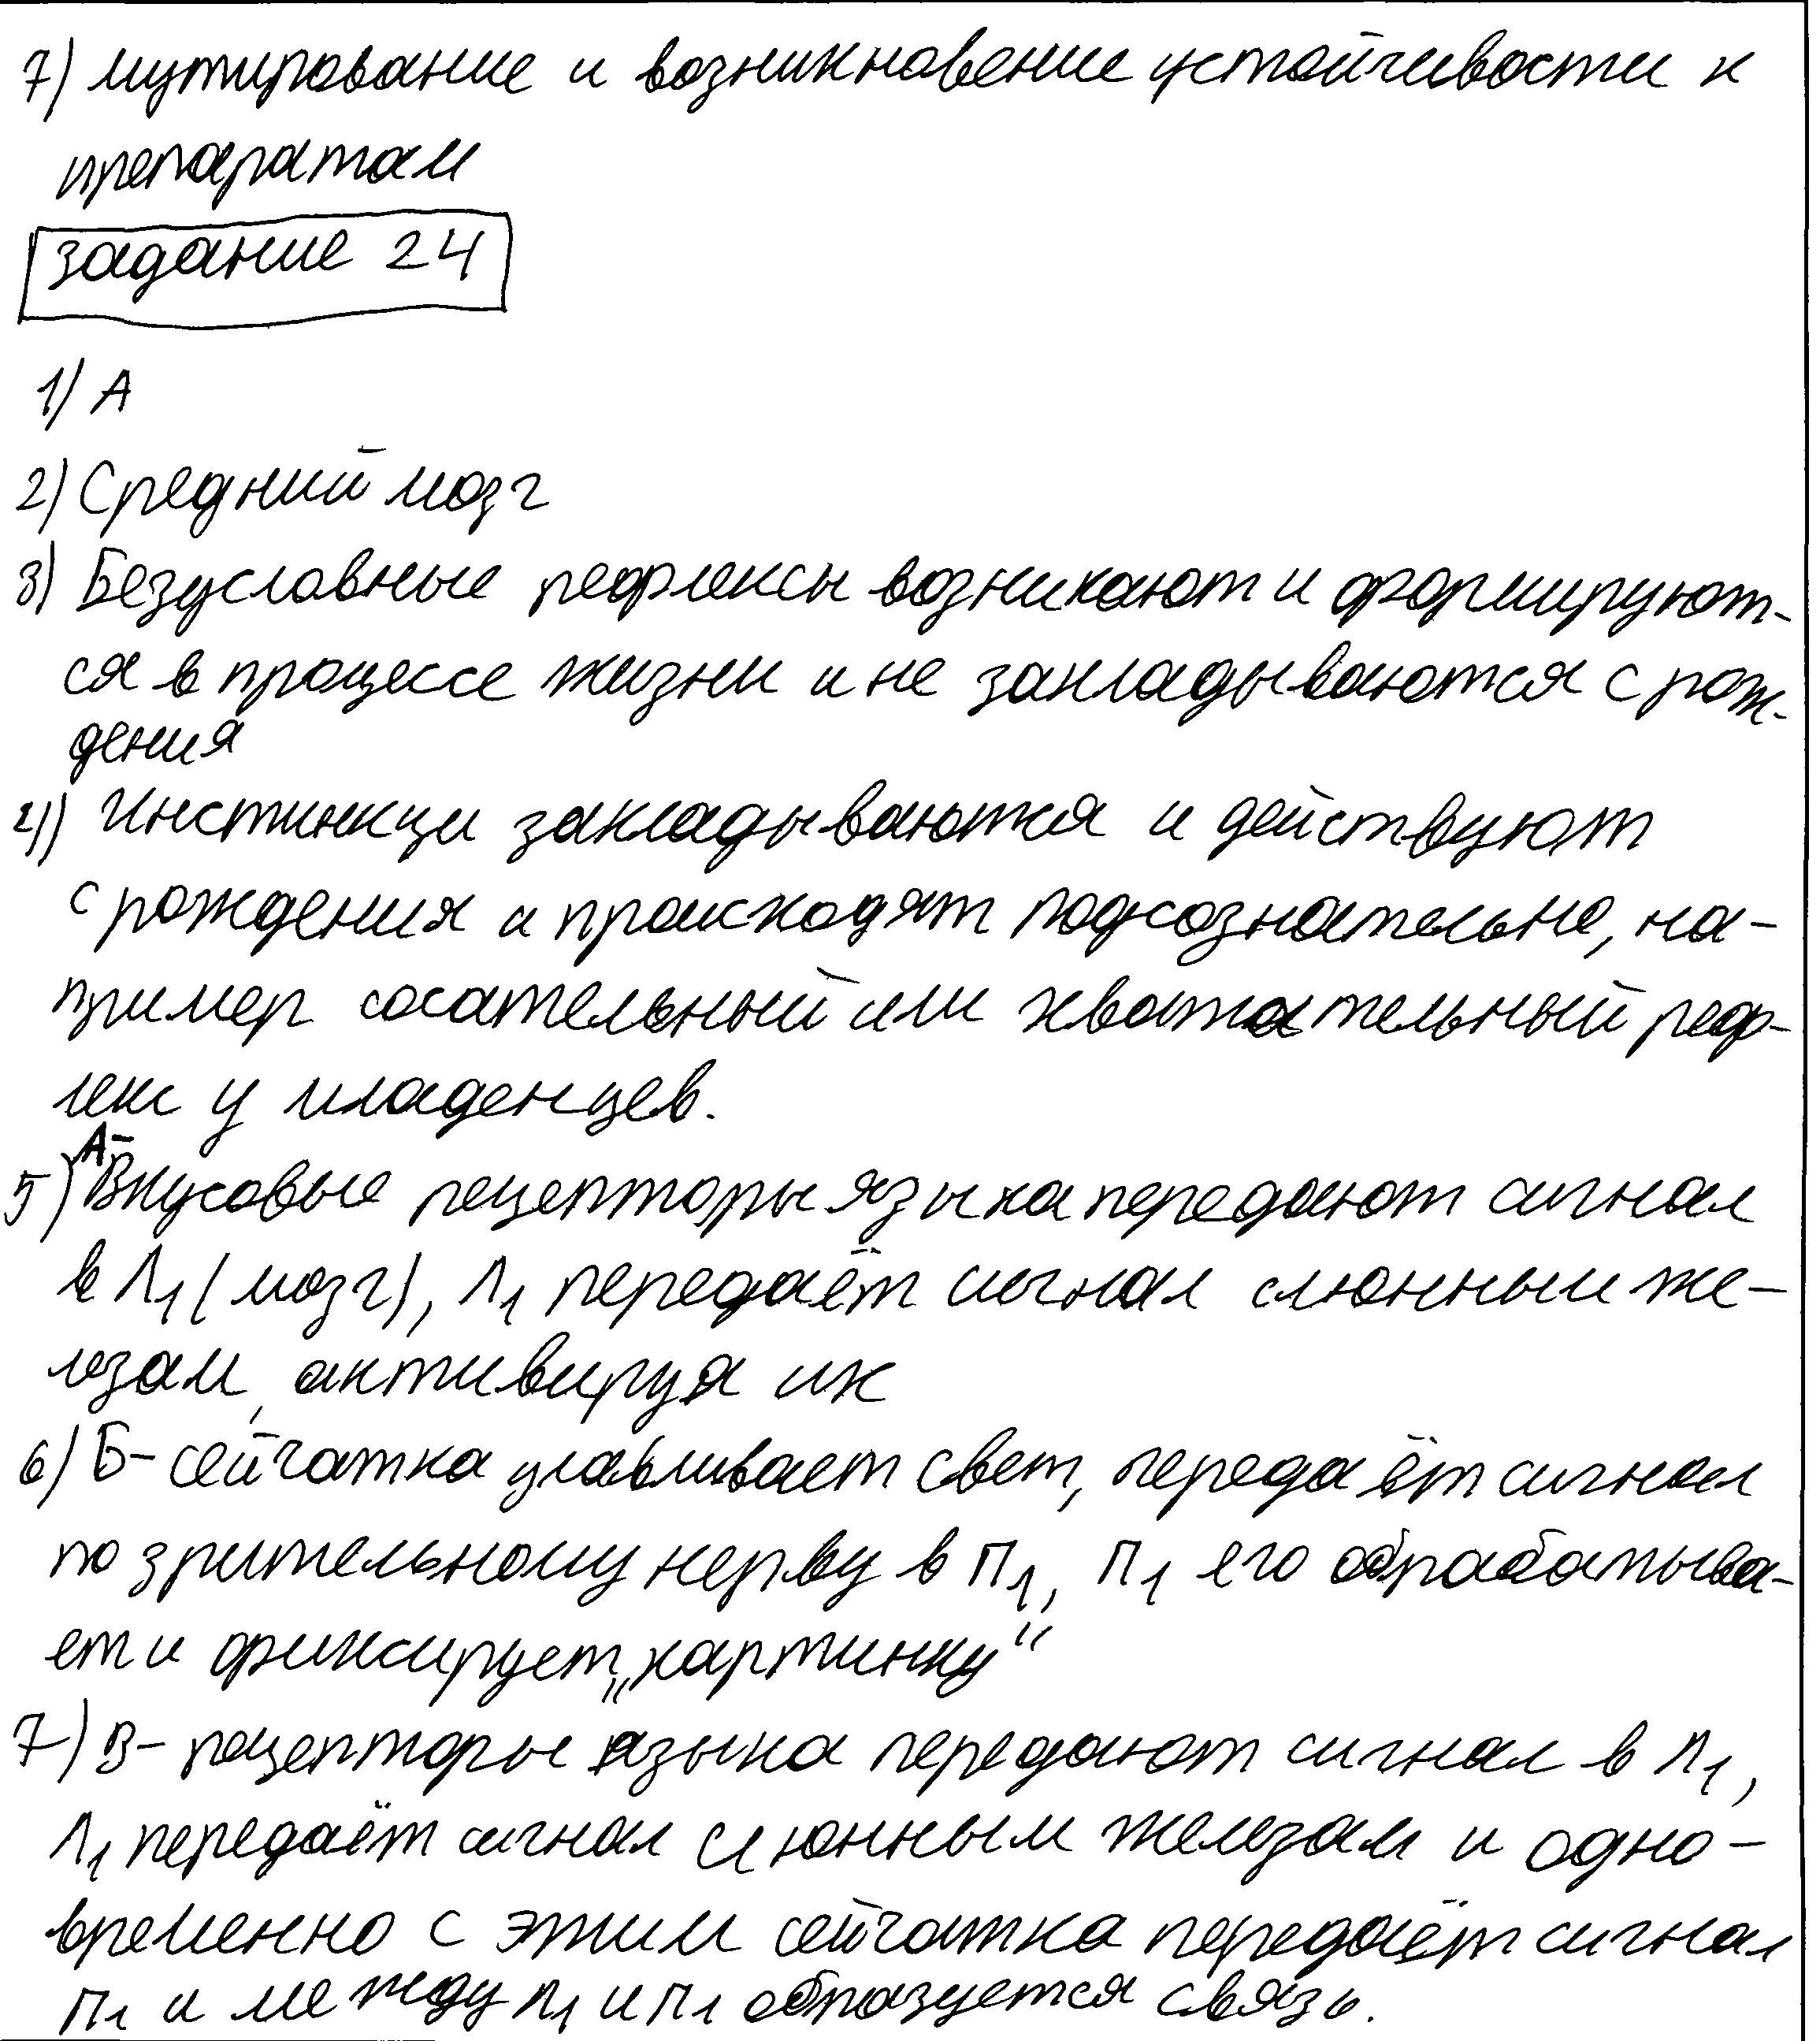 7) мутирование и возникновение устойчивости к
препаратам
задание 24
1) А
2) Средний мозг
3) Безусловные рефлексы возникают и формируют-
ся в процессе жизни и не закладываются с рож-
дения
4) Инстинкци закладываются и действуют
с рождения и происходят подсознательно, на-
пример сосательный или хватательный реф-
лекс у младенцев.
5) А- Вкусовые рецепторы языка передают сигнал
в Л1 (мозг), Л1 передаёт сигнал слюнным же-
лезам, активируя их
6) Б- сейчатка улавливает свет, передаёт сигнал
по зрительному нерву в П1, П1 его обрабатыва-
ет и фиксирует „картинку“
7) В- рецепторы языка передают сигнал в Л1,
Л1 передаёт сигнал слюнным железам и одно-
временно с этим сейчатка передаёт сигнал
П1 и между Л1 и П1 образуется связь.